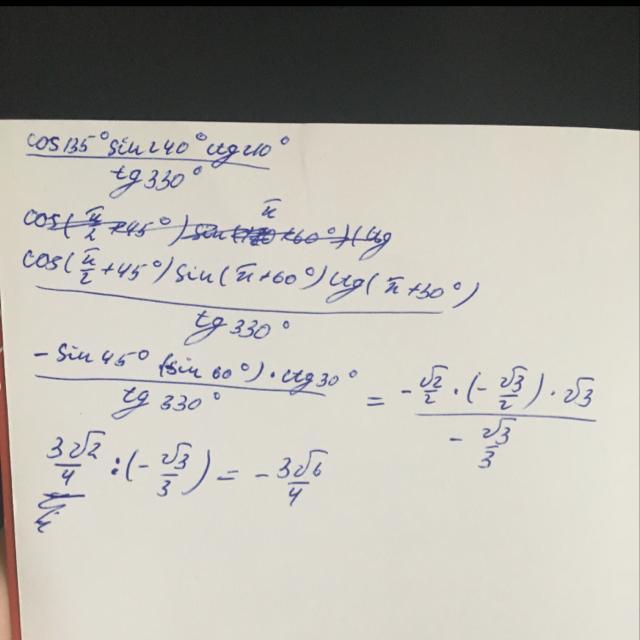 cos135° sin240° ctg210°
tg330°
cos(π/2+45°) sin(π+60°) ctg(π+30°)
tg330°
-sin45° (sin60°)·ctg30° / tg330° = -√2/2·(-√3/2)·√3 / -√3/3
3√2/4 : (-√3/3) = -3√6/4